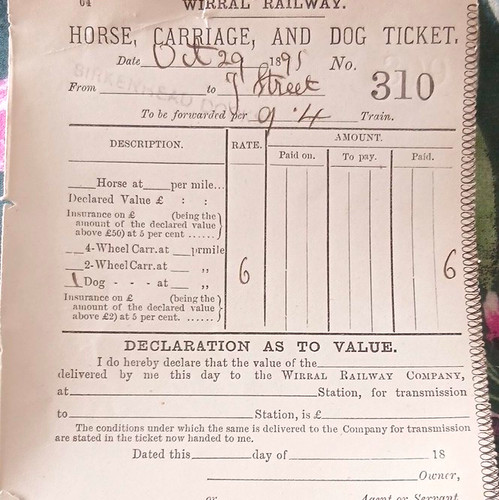 64 WIRRAL RAILWAY.
HORSE, CARRIAGE, AND DOG TICKET.
Date Oct 29 1895 No. 310
BIRKENHEAD DO
From to J Street
To be forwarded per 9.4 Train.
DESCRIPTION. RATE. AMOUNT.
Paid on. To pay. Paid.
Horse at per mile...
Declared Value £ : :
Insurance on £ (being the
amount of the declared value
above £50) at 5 per cent ......
4-Wheel Carr. at prmile
2-Wheel Carr. at „
1 Dog - - - at „ 6 6
Insurance on £ (being the
amount of the declared value
above £2) at 5 per cent. ......
DECLARATION AS TO VALUE.
I do hereby declare that the value of the
delivered by me this day to the WIRRAL RAILWAY COMPANY,
at Station, for transmission
to Station, is £
The conditions under which the same is delivered to the Company for transmission
are stated in the ticket now handed to me.
Dated this day of 18
Owner,
or Agent or Servant